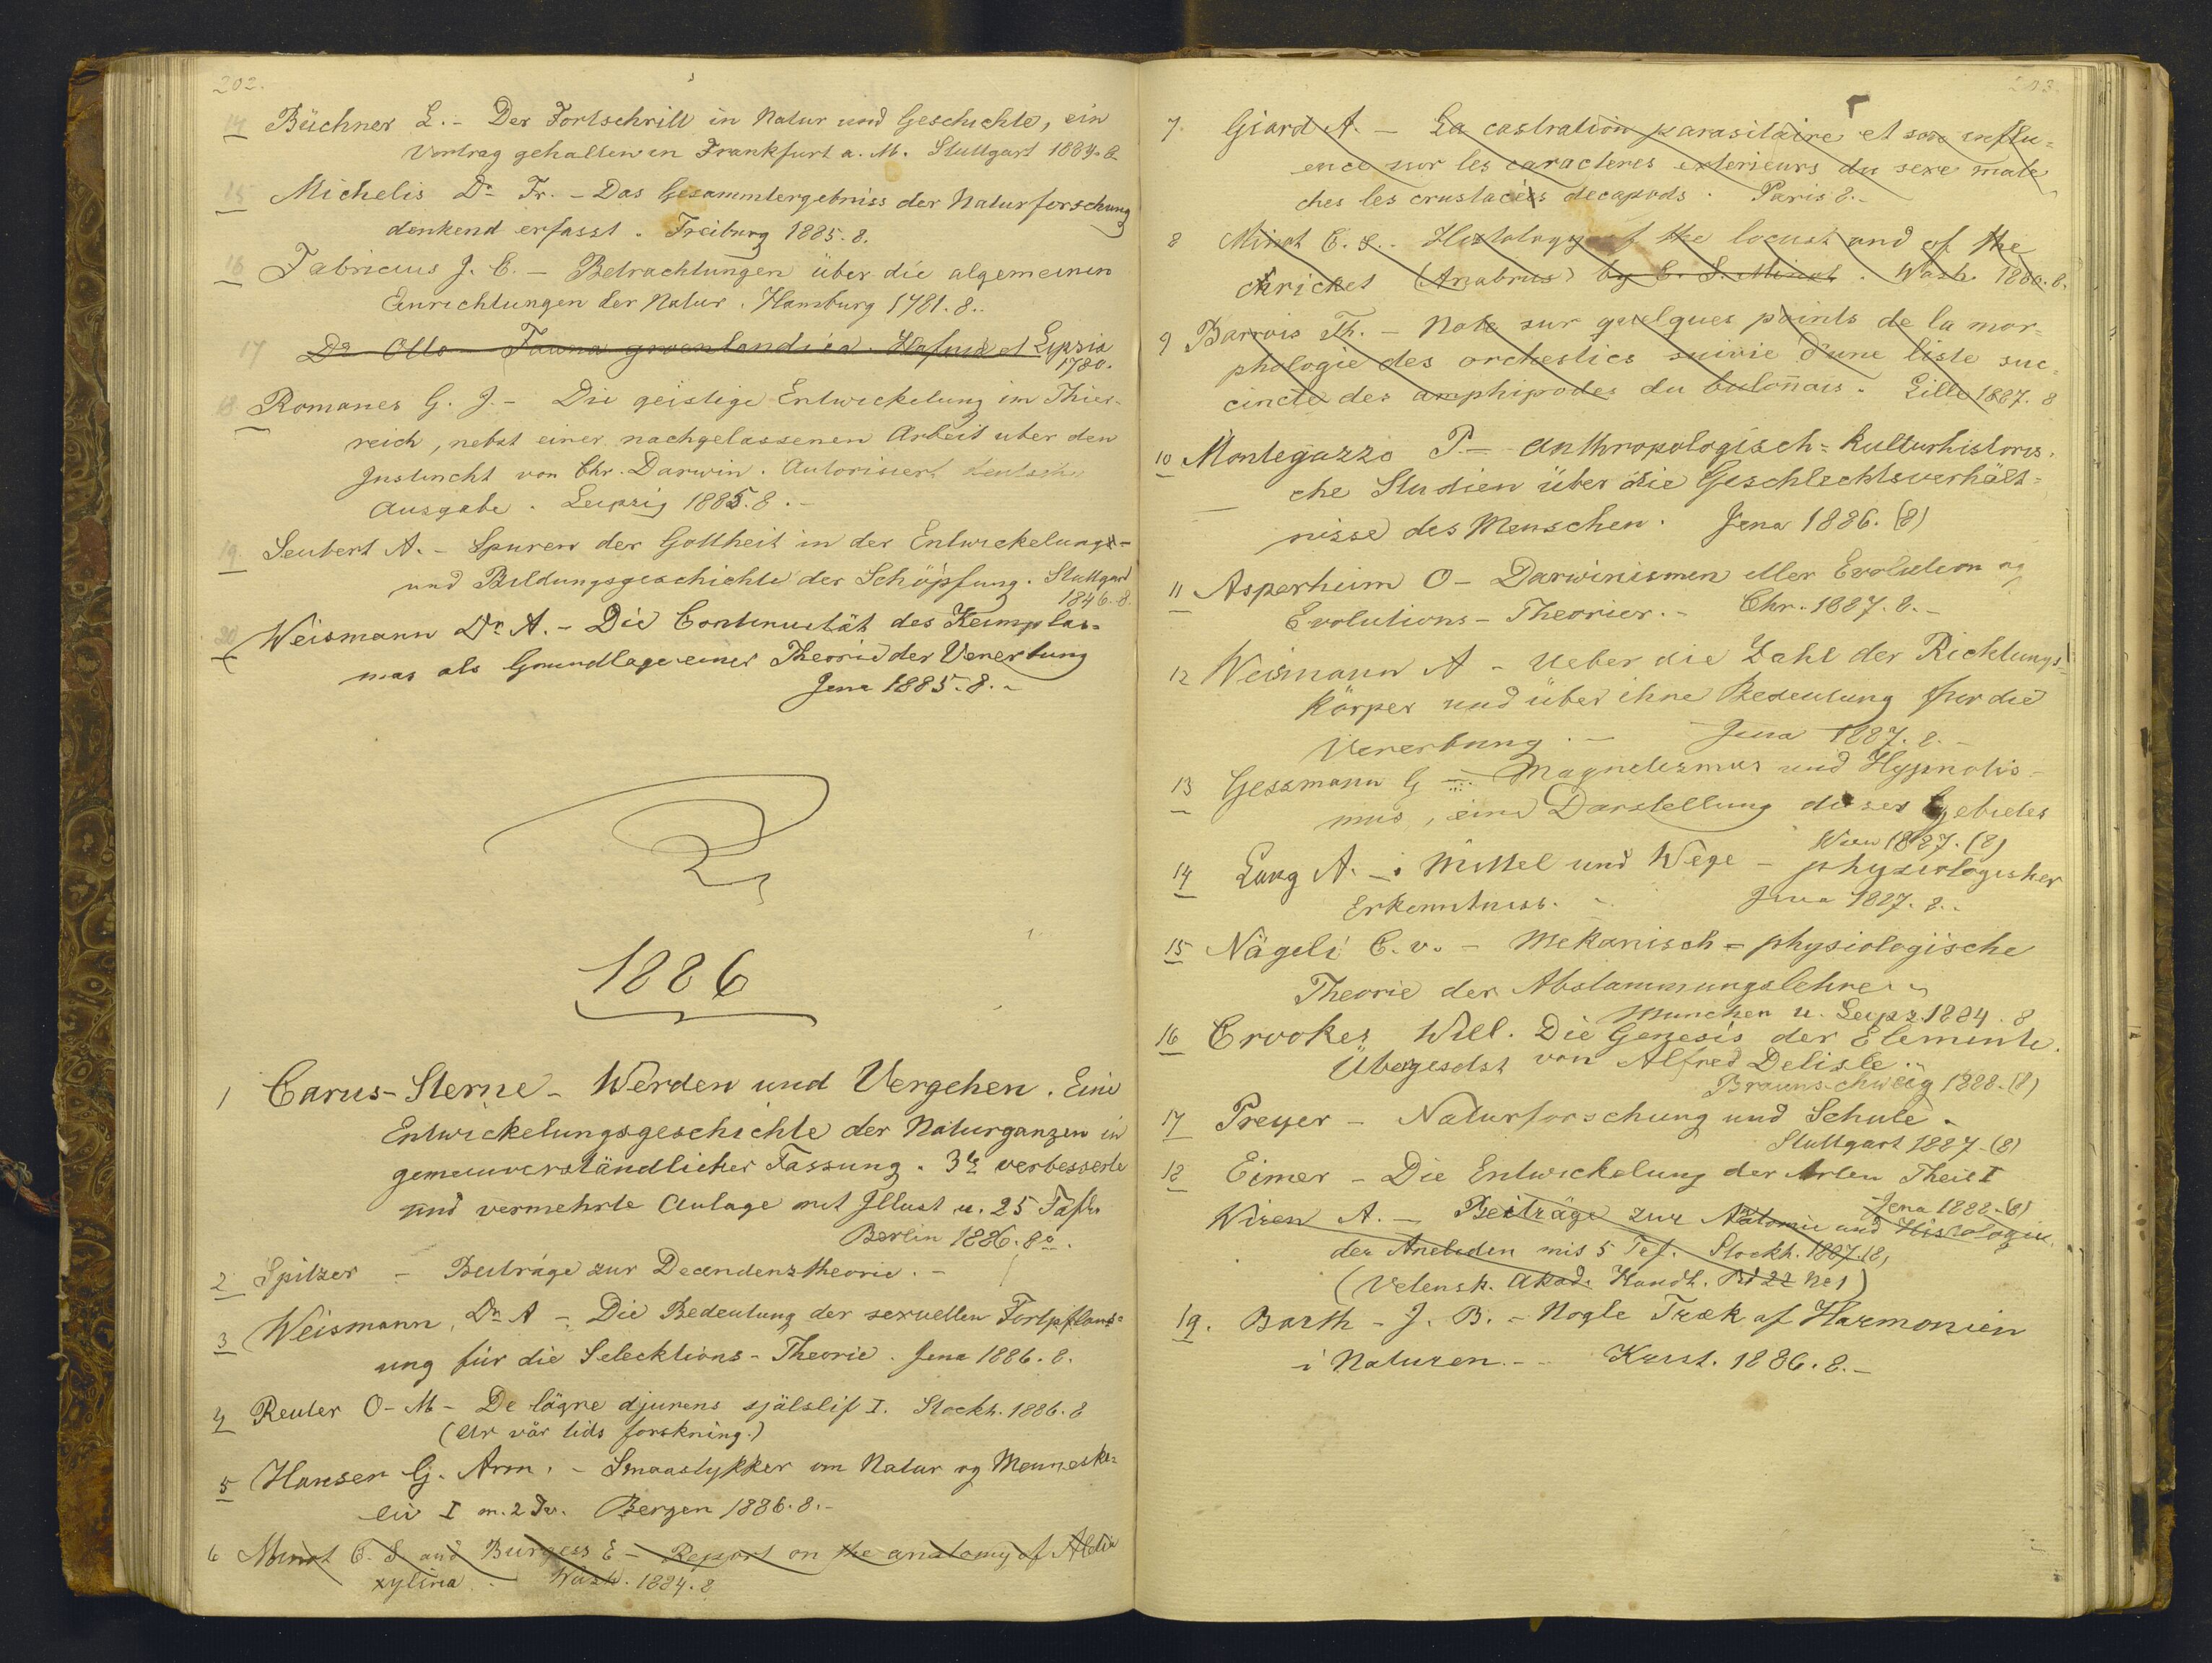 202.
14 Büchner L. - Der Fortschritt in Natur und Geschichte, ein
Vortrag gehalten in Frankfurt a. M. Stuttgart 1884. 8
15 Michelis Dr Fr. - Das Gesammtergebniss der Naturforschung
denkend erfasst. Freiburg 1885. 8.
16 Fabricius J. C. - Betrachtungen über die algemeinen
Einrichtungen der Natur. Hamburg 1781. 8..
17 Dr Otto Fauna groenlandica. Hafniæ et Lipsia
1780.
18 Romanes G. J. - Die geistige Entwickelung im Thier-
reich, nebst einer nachgelassenen Arbeit uber den
Instincht von Chr. Darwin. Autorisiert deutsche
Ausgabe. Leipzig 1885. 8. -
19. Seubert A. - Spuren der Gottheit in der Entwickelungs-
und Bildungsgeschichte der Schöpfung. Stuttgard
1846. 8.
20 Weismann Dr A. - Die Continuität des Keimplas=
mas als Grundlage einer Theorie der Vererbung
Jena 1885. 8. -
1886
1 Carus-Sterne - Werden und Vergehen. Eine
Entwickelungsgeschichte der Naturganzen in
gemeinverständlicher Fassung. 3te verbesserte
und vermehrte Aulage mit Illust u. 25 Tafln
Berlin 1886. 8o.
2 Spitzer - Beiträge zur Decendenztheorie. -
3 Weismann, Dr A - Die Bedeutung der sexuellen Fortpflanz=
ung für die Selecktions-Theorie. Jena 1886. 8.
4 Reuter O-M- De lägre djurens själslif I. Stockh. 1886. 8
(Ur vår tids forskning.)
5 Hansen G. Arm. - Smaastykker om Natur og Menneske=
liv I m. 2 Tv. Bergen 1886. 8. -
6 Minot C. S and Burgess E - Report on the anatomy of Aletia
xylina. - Wash. 1884. 8
203.
7. Giard A. - La castration parasitaire et son influ=
ence sur les caracteres exterieurs du sexe male
ches les crustacées decapods. Paris 8. -
8 Minot C. S. - Histology of the locust and of the
cricket (Anabrus) by C. S. Minot. Wash. 1880. 8.
9 Barrois Th. - Note sur quelques points de la mor=
phologie des orchesties suivie d'une liste suc=
cincte des amphipodes du bulonnais. Lille 1887. 8
10 Montegazzo P - Anthropologisch=kulturhistoris.
che Studien über die Geschlechtsverhält=
nisse des Menschen. Jena 1886. (8)
11 Asperheim O - Darwinismen eller Evolution og
Evolutions-Theorier. - Chr. 1887. 8. -
12 Weismann A - Ueber die Zahl der Richtungs=
körper und über ihre Bedeutung für die
Vererbung. - Jena 1887. 8. -
13 Gessmann G - Magnetismus und Hypnotis-
mus, eine Darstellung dieses Gebietes
Wien 1887. (8)
14 Lang A. - Mittel und Wege - physiologisher
Erkenntniss. - Jena 1887. 8. -
15 Nägeli C. v. - Mekanisch=physiologische
Theorie der Abstammungslehre -
Munchen u. Leipz. 1884. 8
16 Crookes Will. Die Genesis der Elemente.
Übergesetst von Alfred Delisle. -
Braunschweig 1888. (8)
17 Preyer - Naturforschung und Schule -
Stuttgart 1887 - (8)
18 Eimer - Die Entwickelung der Arten Theil I
Jena 1888. (8)
Wiren A. - Beiträge zur Natomie und Histologie
der Aneliden mis 5 Taf. Stockh. 1887. (8)
(Vetensk. Akad. Handl. Bd 22 No 1)
19. Barth - J. B. - Nogle Træk af Harmonien
i Naturen. - - Krist. 1886. 8. -